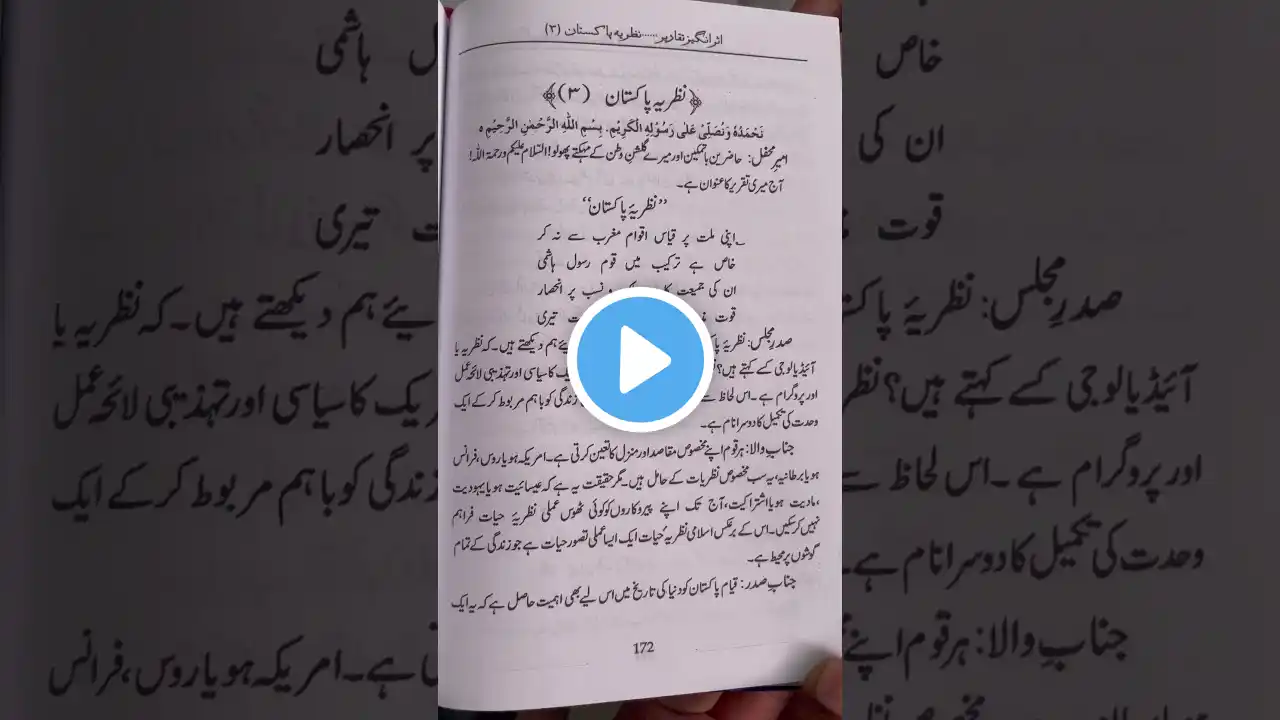 اثر انگیز تقادیر......نظریہ پاکستان (۳)
﴿نظریہ پاکستان (۳)﴾
نَحْمَدُهٗ وَنُصَلِّیْ عَلٰی رَسُوْلِهِ الْكَرِیْم. بِسْمِ اللّٰهِ الرَّحْمٰنِ الرَّحِیْمِ ہ
امیرِ محفل: حاضرین باتمکین اور میرے گلشنِ وطن کے مہکتے پھولو! السّلام علیکم ورحمۃ اللہ!
آج میری تقریر کا عنوان ہے۔
”نظریۂ پاکستان“
؂ اپنی ملت پر قیاس اقوام مغرب سے نہ کر
خاص ہے ترکیب میں قوم رسول ہاشمی
ان کی جمیعت کا نسب پر انحصار
قوت تیری
صدرِ مجلس: نظریۂ یئے ہم دیکھتے ہیں۔ کہ نظریہ یا
آئیڈیالوجی کسے کہتے ہیں؟ یک کا سیاسی اور تہذیبی لائحہ عمل
اور پروگرام ہے۔ اس لحاظ زندگی کو باہم مربوط کر کے ایک
وحدت کی تکمیل کا دوسرا نام ہے۔
جنابِ والا: ہر قوم اپنے مخصوص مقاصد اور منزل کا تعین کرتی ہے۔ امریکہ ہو یا روس، فرانس
ہو یا برطانیہ، یہ سب مخصوص نظریات کے حامل ہیں۔ مگر حقیقت یہ ہے کہ عیسائیت ہو یا یہودیت
،مادیت ہو یا اشتراکیت، آج تک اپنے پیروکاروں کو کوئی ٹھوس عملی نظریۂ حیات فراہم
نہیں کر سکیں۔ اس کے برعکس اسلامی نظریۂ حیات ایک ایسا عملی تصور حیات ہے جو زندگی کے تمام
گوشوں پر محیط ہے۔
جنابِ صدر: قیام پاکستان کو دنیا کی تاریخ میں اس لیے بھی اہمیت حاصل ہے کہ یہ ایک
172